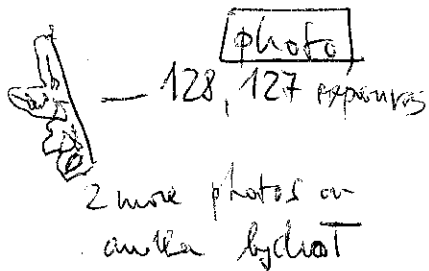 photo
— 128, 127 exposures
2 more photos on
another